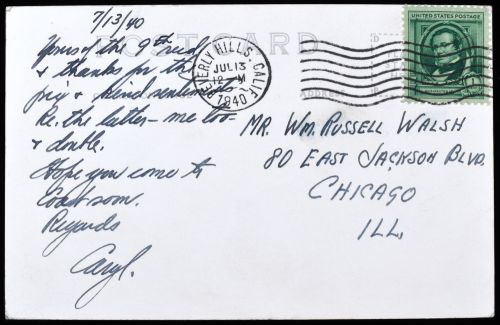 7/13/40
Yours of the 9th rec'd
& thanks for the
pix & kind sentiments
Re. the latter - me too
& double.
Hope you come to
Coast soon.
Regards
Caryl.
POST CARD
BEVERLY HILLS, CALIF.
JUL 13
12 M
1940
UNITED STATES POSTAGE
ADDRESS
MR. WM. RUSSELL WALSH
80 EAST JACKSON BLVD.
CHICAGO
ILL.